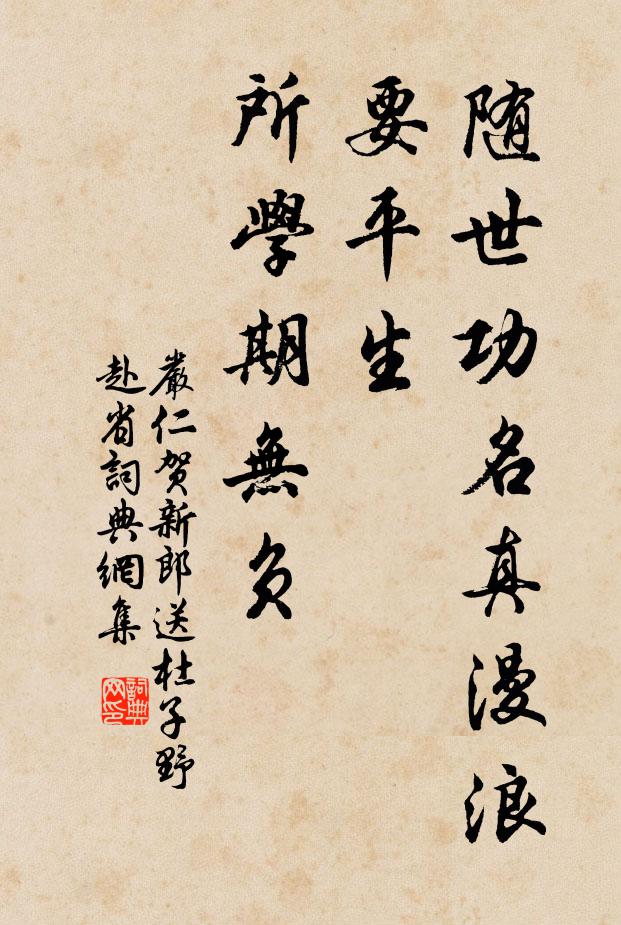 随世功名真漫浪
要平生
所學期無負
嚴仁賀新郎送杜子野
赴省詞典網集
詞典网印